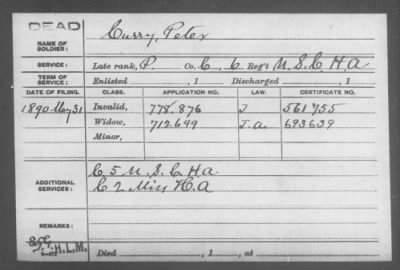 DEAD
NAME OF SOLDIER:
Curry, Peter
SERVICE:
Late rank, P. Co. C, 6 Reg't U.S.C.H.A
TERM OF SERVICE:
Enlisted , 1 Discharged , 1
DATE OF FILING. CLASS. APPLICATION NO. LAW. CERTIFICATE NO.
1890 May 31 Invalid, 778.876 J 561755
Widow, 712649 J.a. 693639
Minor,
ADDITIONAL SERVICES:
C 5 U.S.C.H.A.
C 2 Miss H.A
REMARKS:
H.L.M.
Died , 1 , at